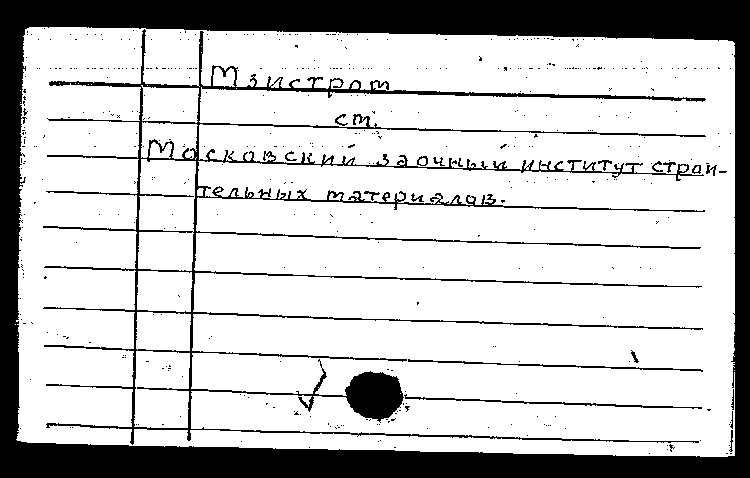 Мзистром
см.
Московский заочный институт строи-
тельных материалов.